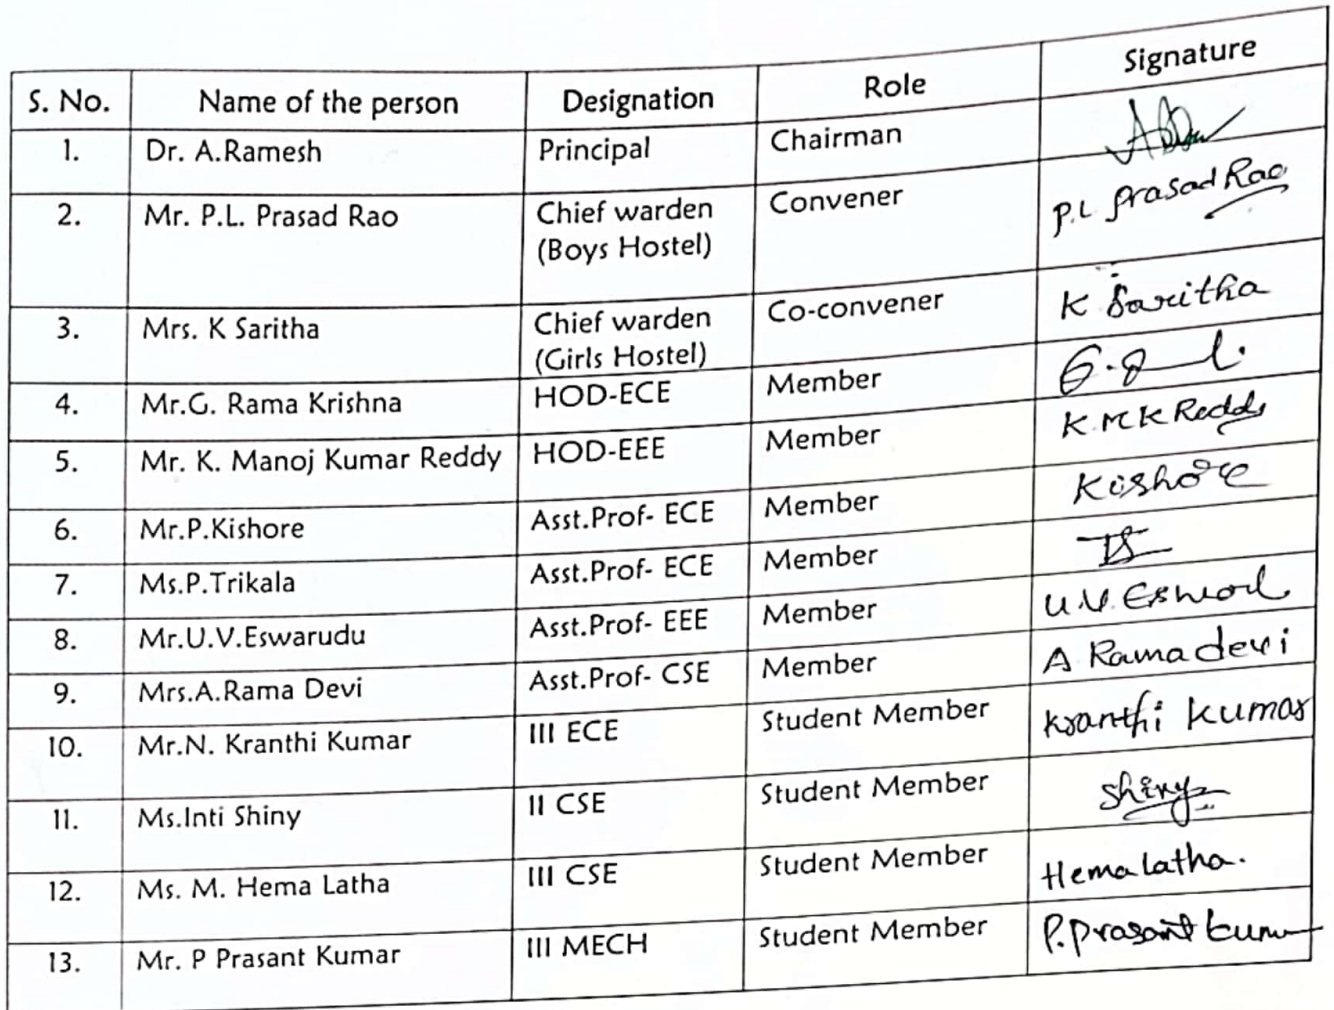 S. No. Name of the person Designation Role Signature
1. Dr. A.Ramesh Principal Chairman
2. Mr. P.L. Prasad Rao Chief warden Convener P.L Prasad Rao
(Boys Hostel)
3. Mrs. K Saritha Chief warden Co-convener K Saritha
(Girls Hostel)
4. Mr.G. Rama Krishna HOD-ECE Member
5. Mr. K. Manoj Kumar Reddy HOD-EEE Member K.M.K Reddy
6. Mr.P.Kishore Asst.Prof- ECE Member Kishore
7. Ms.P.Trikala Asst.Prof- ECE Member
8. Mr.U.V.Eswarudu Asst.Prof- EEE Member U.V.
9. Mrs.A.Rama Devi Asst.Prof- CSE Member A Ramadevi
10. Mr.N. Kranthi Kumar III ECE Student Member Kranthi Kumar
11. Ms.Inti Shiny II CSE Student Member Shiny
12. Ms. M. Hema Latha III CSE Student Member Hemalatha.
13. Mr. P Prasant Kumar III MECH Student Member P.Prasant kumar